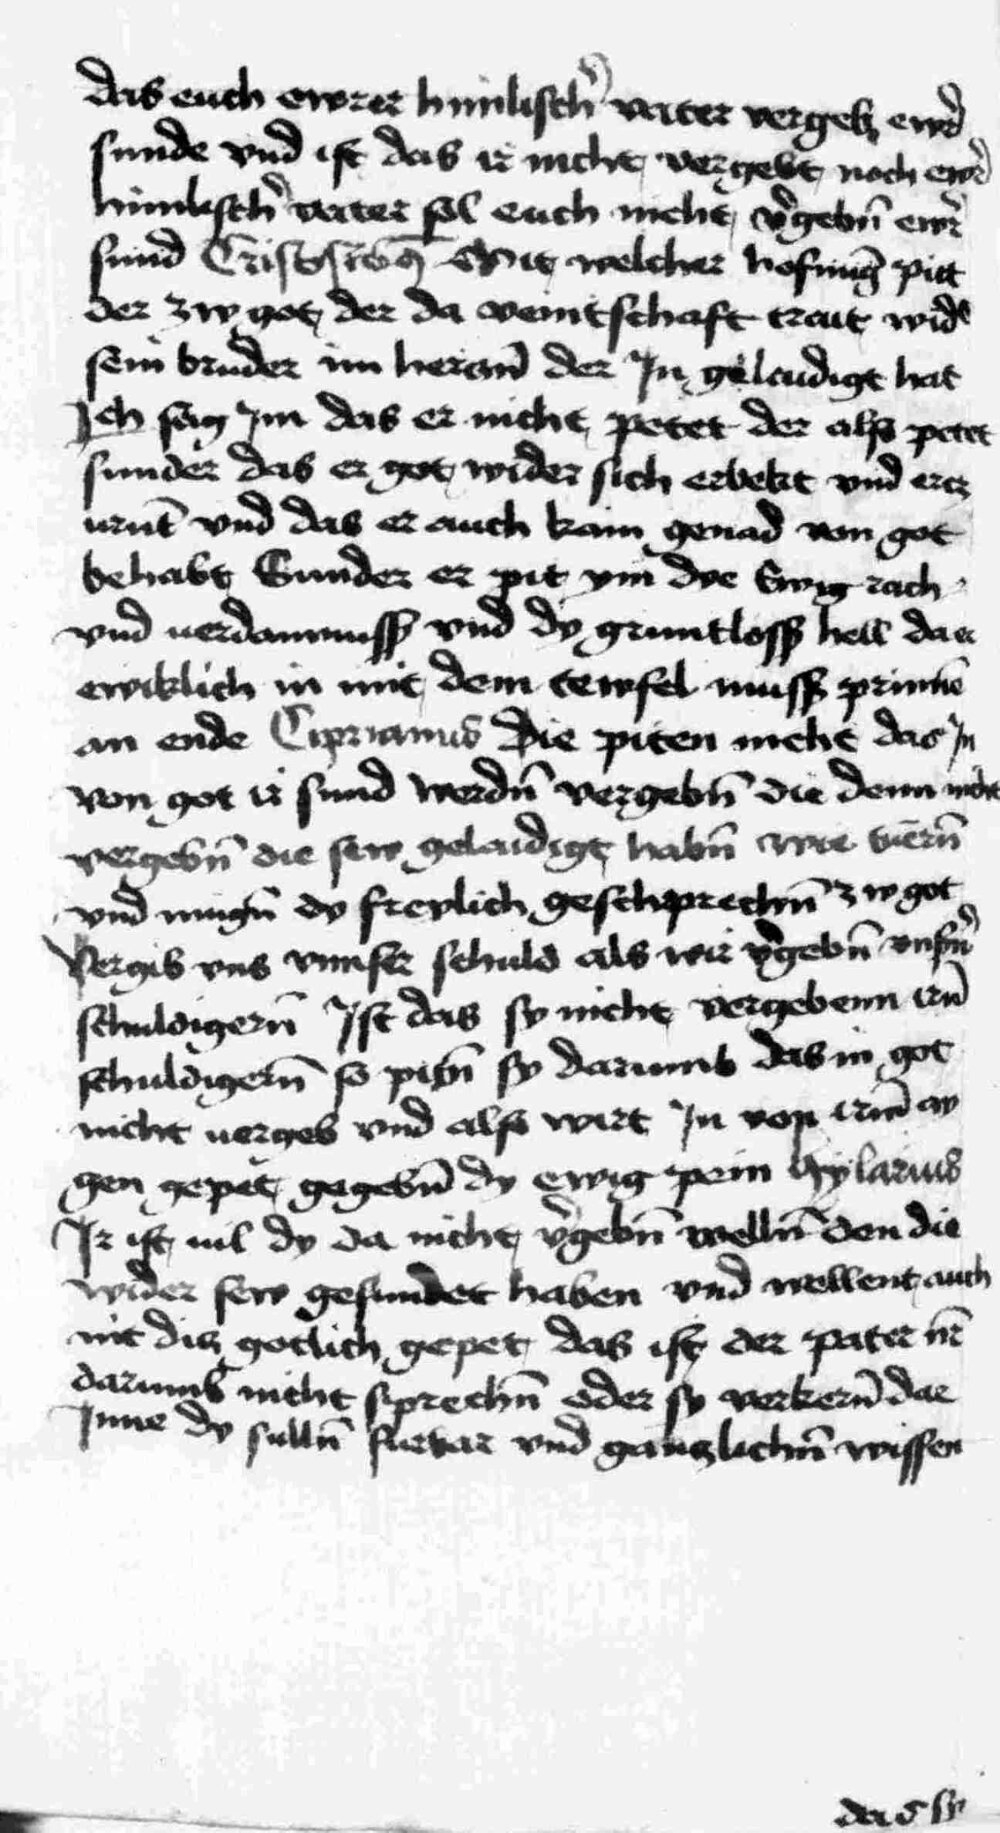 das euch ewrer himlisch̄ vater vergeb ewr̄
sunde vnd ist das ir nicht vergebt noch ewr̄
himlisch̄ vater sol euch nicht v̄gebn̄ ewr̄
sund Crisostom9 Mit welcher hofnūg pitt
der zw got der da veintschaft trait wid̄
sein bruder im herczn̄ der In gelaidigt hat
Ich sag Im das er nicht petet der also petet
sunder das er got wider sich erbekt vnd ercz
urnt̄ vnd das er auch kain genad von got
behabt Sunder er pit ym dye Ewig rach
vnd uerdamnuss vnd dy gruntloss hell da er
ewiklich in mit dem tewfel muss prinnē
an ende Ciprianus Die piten nicht das In
von got ir sund werdn̄ vergebn̄ die denn nicht
vergebn̄ die sew gelaidigt habn̄ wie
vnd mugn̄ dy freylich gesprechn̄ zw got
Vergib vns vnnser schuld als wir v̄gebn̄ vnsn̄
schuldigern̄ Ist das sy nicht vergebenn irn̄
schuldigern̄ so pittn̄ sy darumb das in got
nicht uergeb vnd also wirt In von irm̄ ay
gen gepet gegebn̄ dy ewig pein Hylarius
Ir ist uil dy da nicht v̄gebn̄ welln̄ den die
wider sew gesundet haben vnd wellent auch
mit dis gotlich gepet das ist der pater nr̄
darumb nicht sprechn̄ oder sy verkern̄ dae
Inne dy sulln̄ furbar vnd ganczlichn̄ wissen
das sy